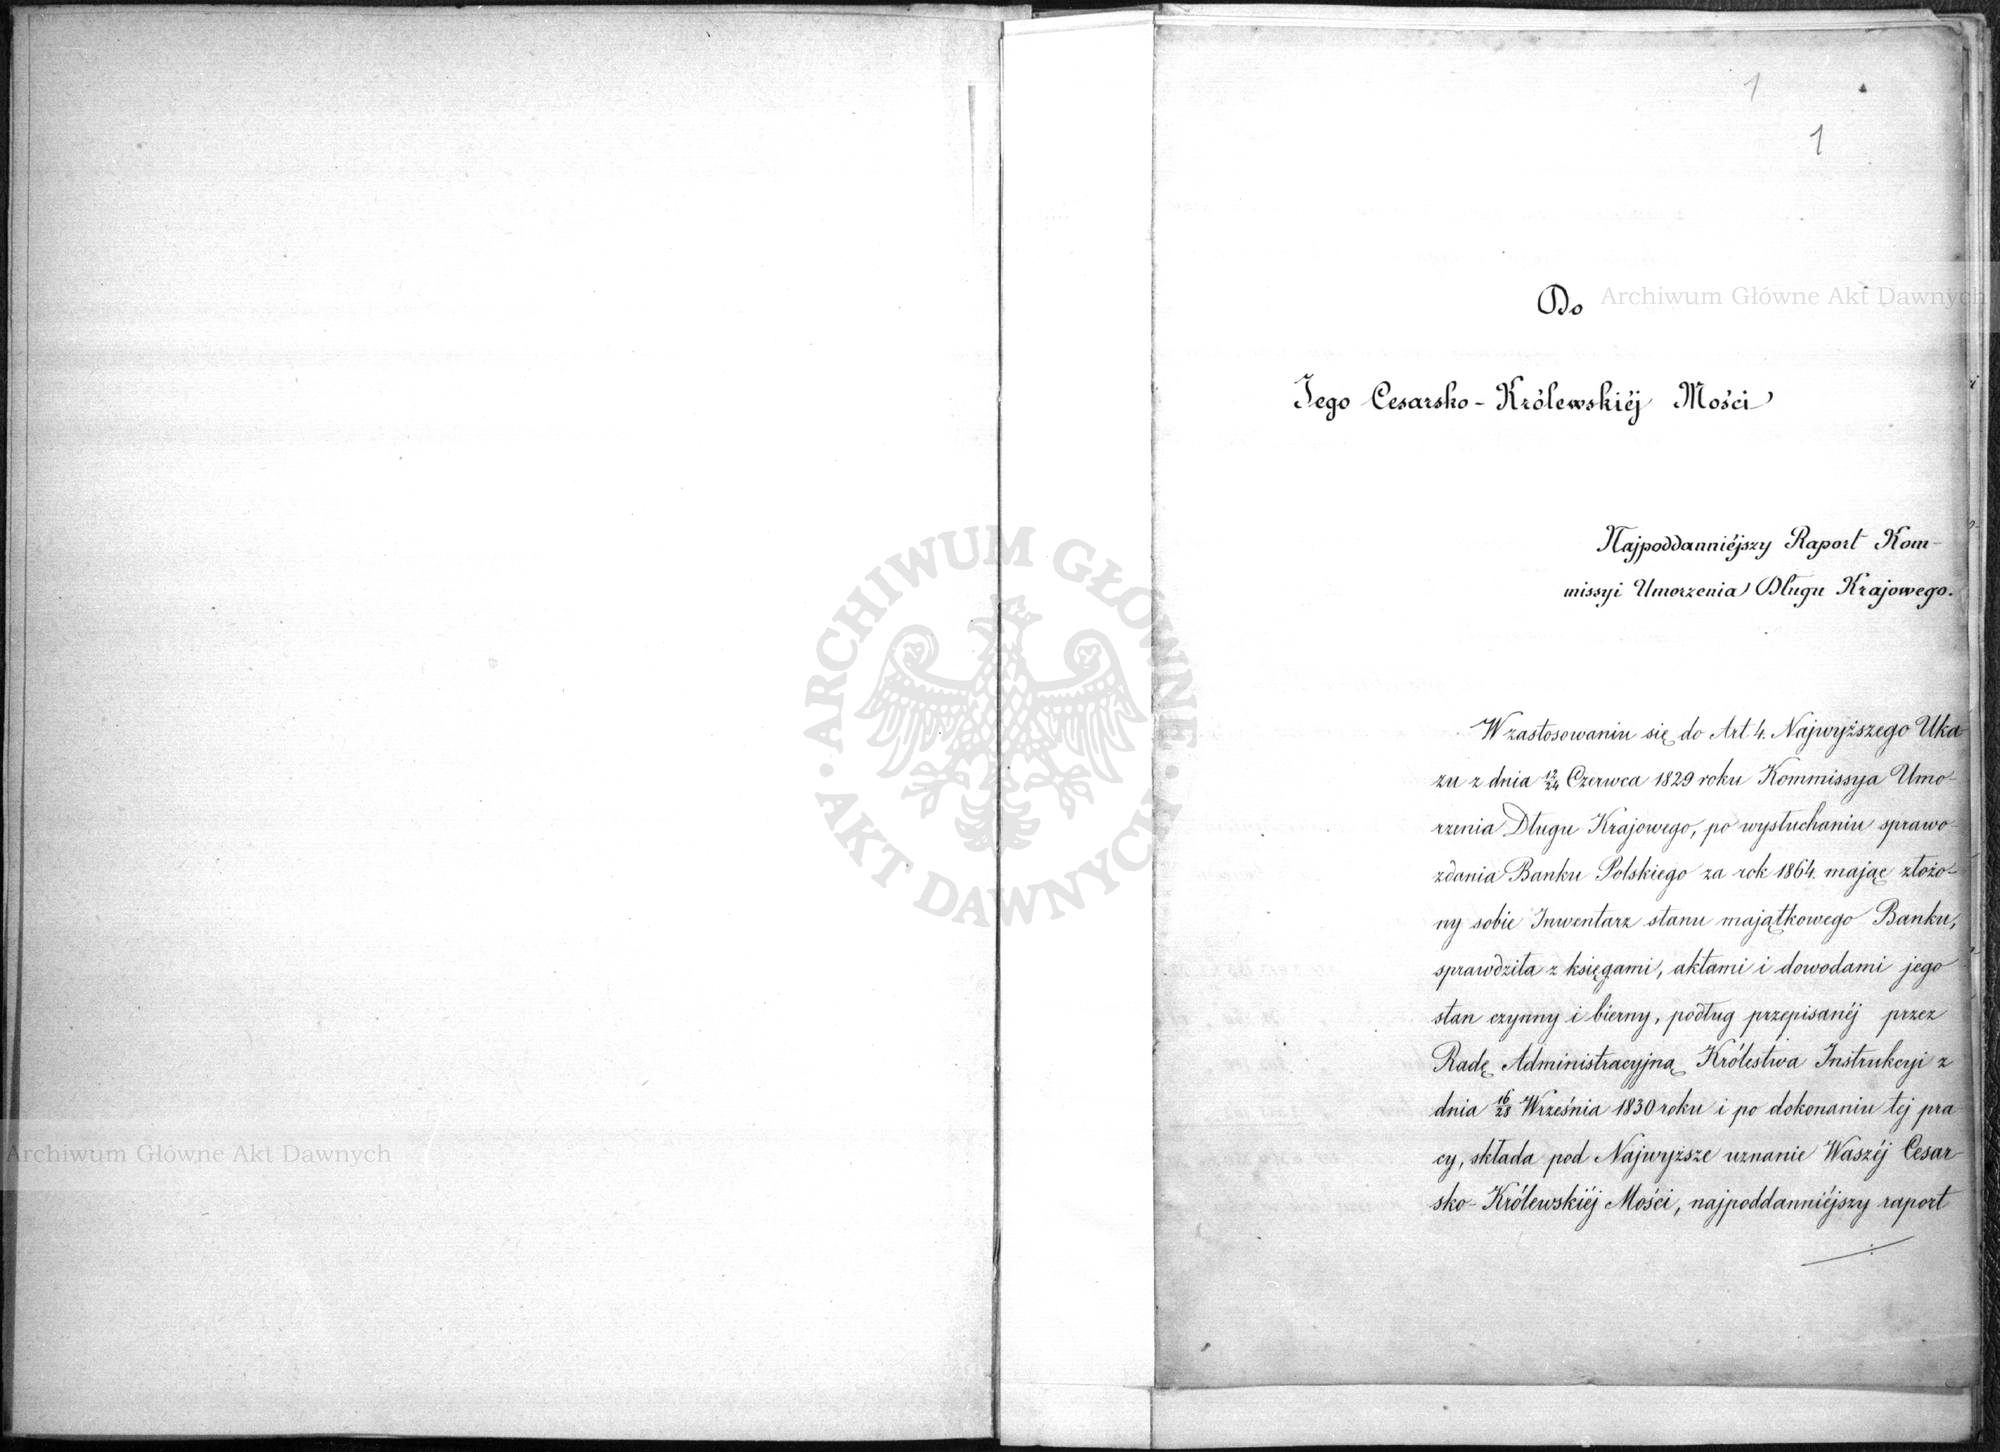 1
1
Do
Jego Cesarsko-Królewskiéj Mości
Najpoddanniéjszy Raport Kom-
missyi Umorzenia Długu Krajowego.
W zastosowaniu się do Art 4. Najwyższego Uka
zu z dnia 12/24 Czerwca 1829 roku Kommissya Umo-
rzenia Długu Krajowego, po wysłuchaniu sprawo-
zdania Banku Polskiego za rok 1864. mając złożo-
ny sobie Inwentarz stanu majątkowego Banku,
sprawdziła z księgami, aktami i dowodami jego
stan czynny i bierny, podług przepisanéj przez
Radę Administracyjną Królestwa Instrukcyi z
dnia 16/28 Września 1830 roku i po dokonaniu téj pra-
cy, składa pod Najwyższe uznanie Waszéj Cesar-
sko-Królewskiéj Mości, najpoddanniéjszy raport
Archiwum Główne Akt Dawnych
ARCHIWUM GŁÓWNE
AKT DAWNYCH
Archiwum Główne Akt Dawnych